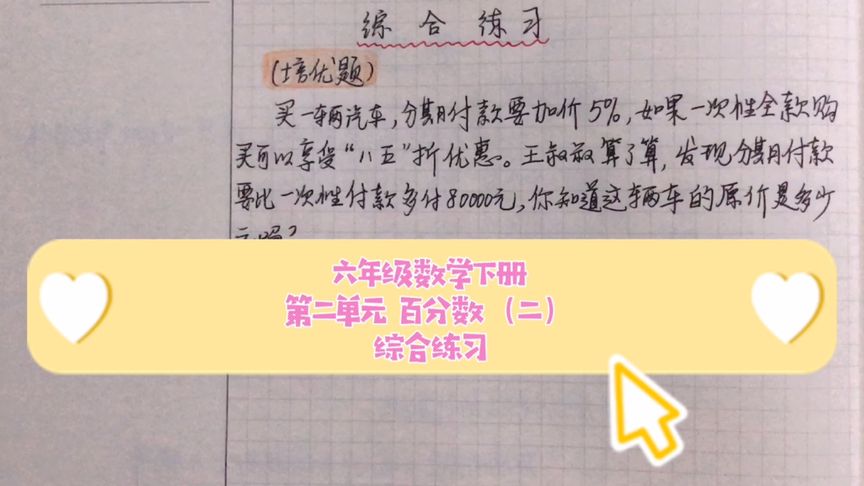 综合练习
(培优题)
买一辆汽车,分期付款要加价5%,如果一次性全款购
买可以享受“八五”折优惠。王叔叔算了算,发现分期付款
要比一次性付款多付80000元,你知道这辆车的原价是多少
六年级数学下册
第二单元 百分数(二)
综合练习